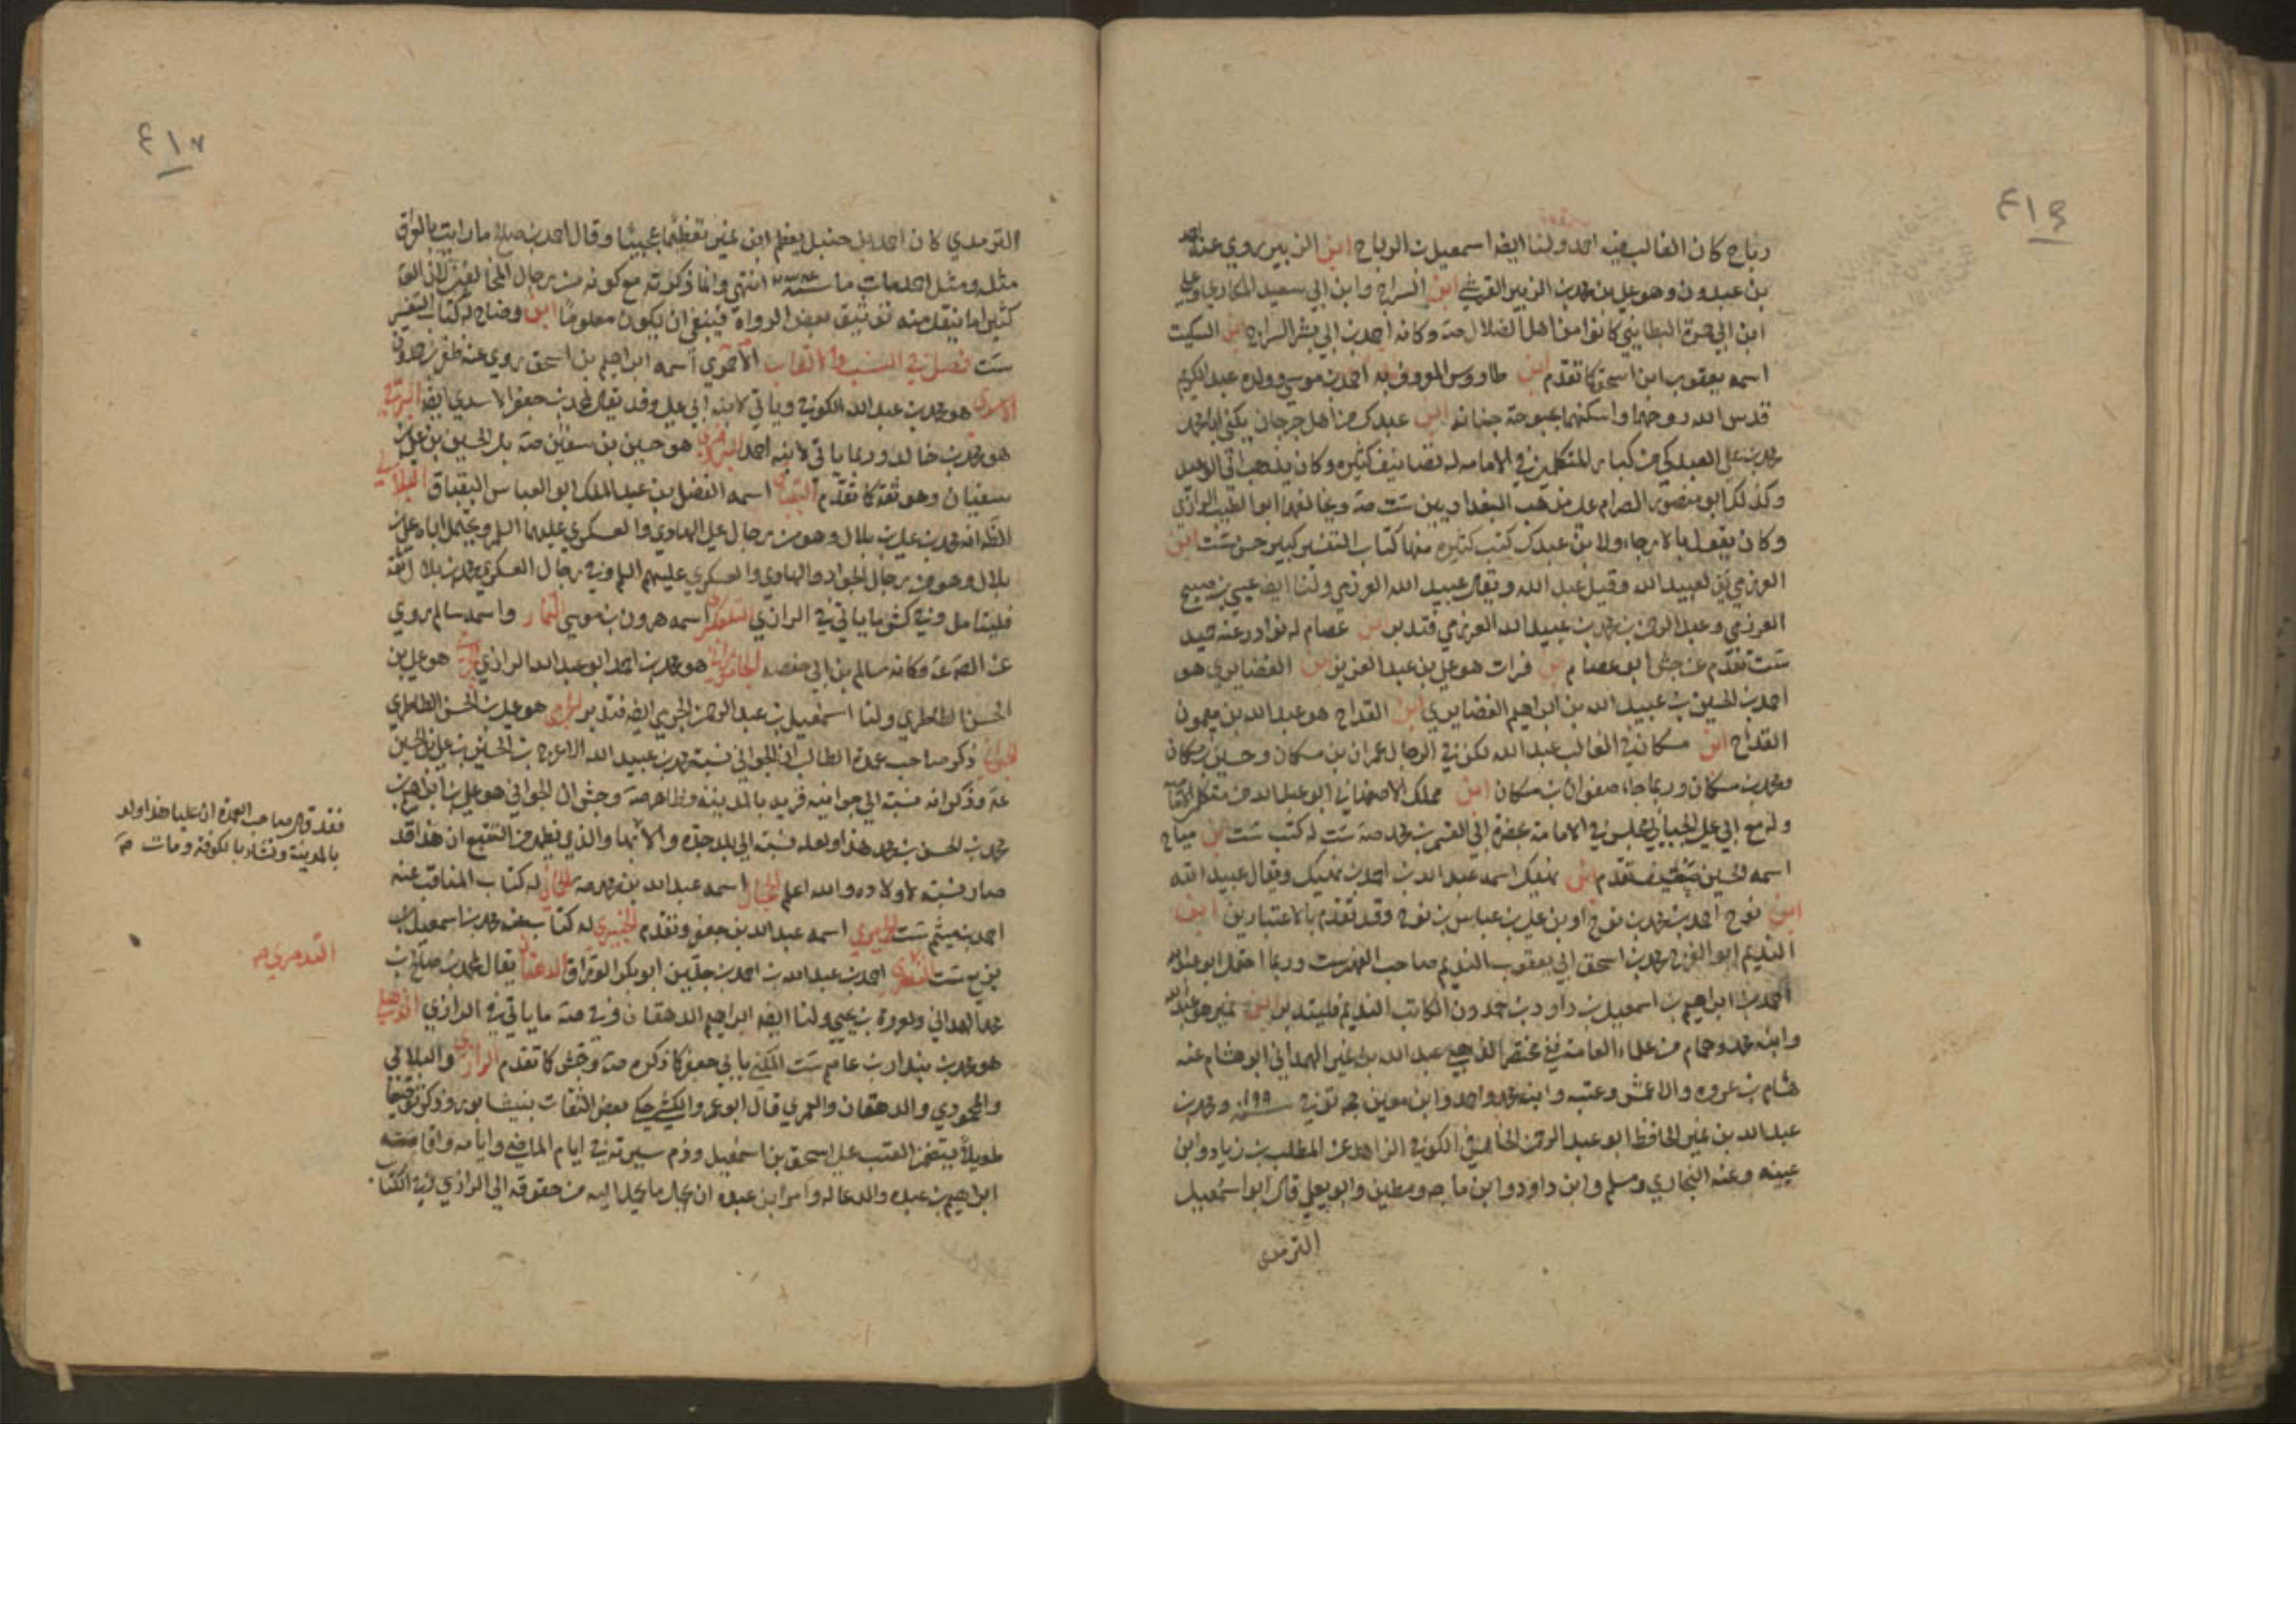 ٤١٦
رباح كان الغالب فيه احمد ولنا ايضا اسمعيل بن الرباح ابن الزبير روي عنه احمد
بن عبدون وهو علي بن محمد بن الزبير القرشي ابن السراج وابن ابي سعيد المكاري وعلي
ابن ابي حمزة البطايني كانوا من اهل الضلال صه وكانه احمد بن ابي بشر السراج ابن السكيت
اسمه يعقوب ابن اسحق كما تقدم ابن طاووس المعروف به احمد بن موسي وولده عبد الكريم
قدس الله روحهما واسكنهما بحبوحة جنانه ابن عبدك من اهل جرجان يكني ابا محمد
محمد بن علي العبدكي من كبار المتكلمين في الامامه له تصانيف كثيره وكان يذهب الي الوعيد
وكذلك ابو منصور الصرام علي مذهب البغداديين ست صه ويخالفهما ابو الطيب الرازي
وكان يقول بالارجاء ولابن عبدك كتب كثيره منها كتاب التفسير كبير حسن ست ابن
العرزمي لعبيد الله وقيل عبد الله ويقال عبيد الله العرزمي ولنا ايضا عيسي بن صبيح
العرزمي وعبد الرحمن بن محمد بن عبيد الله العرزمي فتدبر ابن عصام له نوادر عنه حميد
ست تقدم عن جش ابو عصام ابن فرات هو علي بن عبد العزيز ابن الغضايري هو
احمد بن الحسين بن عبيد الله بن ابراهيم الغضايري ابن القداح هو عبد الله بن ميمون
القداح ابن مسكان في الغالب عبد الله لكن في الرجال عمران بن مسكان وحسين بن مسكان
ومحمد بن مسكان وربما جاء صفوان بن مسكان ابن مملك الاصفهاني ابو عبد الله من متكلمي الاماميه
وله مع ابي علي الجبايي مجلس في الامامة بحضرة ابي القسم بن محمد صه ست له كتب ست ابن مياح
اسمه حسين ضعيف تقدم ابن نهيك اسمه عبد الله بن احمد بن نهيك ويقال عبيد الله
ابن نوح احمد بن محمد بن نوح او بن علي بن عباس بن نوح وقد تقدم بالاعتبارين ابن
النديم ابو الفرج محمد بن اسحق ابي يعقوب النديم صاحب الفهرست وربما احتمل ابو عبد الله
احمد بن ابراهيم بن اسمعيل بن داود بن حمدون الكاتب النديم فليتدبر ابن نمير هو عبد الله
وابنه محمد وهما من علماء العامة في مختصر الذهبي عبد الله بن نمير الهمداني ابو هشام عنه
هشام بن عروه والاعمش وعتبه وابنه محمد واحمد وابن معين حجه توفي سنة ١٩٩ ومحمد بن
عبد الله بن نمير الحافظ ابو عبد الرحمن الخارفي الكوفي الزاهد عن المطلب بن زياد وابن
عيينه وعنه البخاري ومسلم وابن داود وابن ماجه ومطين وابو يعلي قال ابو اسمعيل
الترمدي
٤١٧
الترمدي كان احمد بن حنبل يعظم ابن نمير تعظيما عجيبا وقال احمد بن صالح ما رايت بالعراق
مثله ومثل احمد مات سنة ٢٣٤ انتهي وانما ذكرته مع كونه من رجال المخالفين لان
كثيرا ما ينقل عنه توثيق بعض الرواة فينبغي ان يكون معلوما ابن وضاح له كتاب التفسير
ست فصل في النسب والالقاب الاحمري اسمه ابراهيم بن اسحق روي عنه ظفر بن حمدون
الاسدي هو محمد بن عبد الله الكوفي وياتي لابنه ابي علي وقد يقال لمحمد بن جعفر الاسدي ايضا البرقي
هو محمد بن خالد وربما ياتي لابنه احمد البزوفري هو حسين بن سفين صه بل الحسين بن علي بن
سفيان وهو ثقة كما تقدم البقباق اسمه الفضل بن عبد الملك ابو العباس البقباق البلالي
الظ انه محمد بن علي بن بلال وهو من رجال علي الهادي والعسكري عليهما السلم ويحتمل اباه علي بن
بلال وهو من رجال الجواد والهادي والعسكري عليهم السلم وفي رجال العسكري محمد بن بلال ثقة
فليتامل وفي كش ما ياتي في الرازي التلعكبري اسمه هرون بن موسي التمار واسمه سالم روي
عن الصه عه وكانه سالم بن ابي حفصه الجاموراني هو محمد بن احمد ابو عبد الله الرازي هو علي بن
الحسن الطاطري ولنا اسمعيل بن عبد الرحمن الجرمي ايضا فتدبر الجرمي هو علي بن الحسن الطاطري
الجواني ذكر صاحب عمدة الطالب ان الجواني نسبة محمد بن عبيد الله الاعرج بن الحسين بن علي بن الحسين
عه وذكر انه نسبة الي جوانيه قريه بالمدينة وظاهر صه وجش ان الجواني هو علي بن ابراهيم بن
محمد بن الحسن بن محمد هذا ولعله نسبة الي بلد جده والانتما والذي يظهر من التتبع ان هذا قد
صار نسبة لاولاده والله اعلم الحجال اسمه عبد الله بن محمد صه له كتاب المناقب عنه
احمد بن ميثم ست الحميري اسمه عبد الله بن جعفر وتقدم الخيبري له كتاب عنه محمد بن اسمعيل بن
بزيع ست الدوري احمد بن عبد الله بن احمد بن جلين ابو بكر الوراق الدهقان يقال لمحمد بن صالح بن
محمد الهمداني ولعروة بن يحيي ولنا ايضا ابراهيم الدهقان وفي صه ما ياتي في الرازي الذهلي
هو محمد بن بندار بن عاصم ست المكني بابي جعفر كما ذكره صه وجش كما تقدم الرازي والبلالي
والمحمودي والدهقان والعمري قال ابو عمرو الكشي حكي بعض الثقات بنيشابور وذكر توقيعا
طويلا يتضمن العتب علي اسحق بن اسمعيل وذم سيرته في ايام الماضي وايامه واقامته
ابراهيم بن عبده والدعا له وامر ابن عبده ان يحمل ما يحمل اليه من حقوقه الي الرازي وفي الكتاب
فقد قال صاحب العمدة ان عليا هذا ولد
بالمدينة ونشا بالكوفة ومات